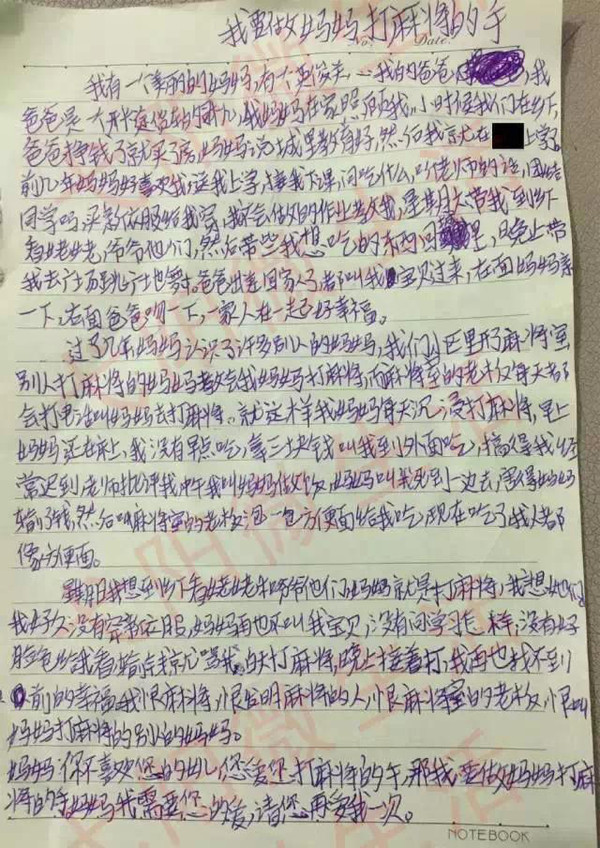 我要做妈妈打麻将的手
No.
Date.
我有一个美丽的妈妈,有个英俊 的我的爸爸, 我
爸爸是 的,我妈妈在家照顾我。小时候我们在乡下,
爸爸挣钱了就买了房,妈妈说城里教育好,然后我就在 上学。
前几年妈妈好喜欢我,送我上学,接我下课,问吃什么,听老师的话,团结
同学吗,买新衣服给我穿,我不会做的作业教我,星期六带我到乡下
看姥姥,爷爷他们,然后带些我想吃的东西回 里,日晚上带
我去广场跳广 舞。爸爸出差回家了都叫我宝贝过来,左面妈妈亲
一下,右面爸爸吻一下,一家人在一起好幸福。
过了几年妈妈认识了许多别人的妈妈,我们小区里开了麻将室,
别人打麻将的妈妈教会我妈妈打麻将,而麻将室的老板每天都
会打电话叫妈妈去打麻将。就这样我妈妈每天沉浸打麻将,早上
妈妈还在床上,我没有早点吃,拿三块钱叫我到外面吃,搞得我经
常迟到,老师批评我,中午我叫妈妈做饭,妈妈叫我死到一边去,害得妈妈
输了钱,然后叫麻将室的老板泡一包方便面给我吃,现在吃了我人都
像方便面。
星期我想到乡下看姥姥和爷爷他们,妈妈就是打麻将,我想她们
我好久没有穿新衣服,妈妈再也不叫我宝贝,没有问学习怎样,没有好
脸色给我看,输钱就骂我。白天打麻将,晚上接着打,我再也找不到
前的幸福,我恨麻将,恨发明麻将的人,恨麻将室的老板,恨叫
妈妈打麻将的别人的妈妈。
妈妈你不喜欢您的 儿,您爱您打麻将的手,那我要做妈妈打麻
将的手,妈妈我需要您的爱,请您再爱我一次。
NOTEBOOK